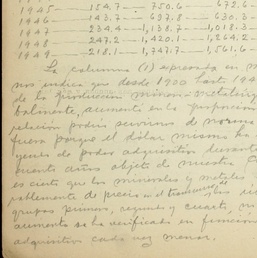 1945 — 154.7 — 750.6 — 672.6
1946 — 143.7 — 697.8 — 630.3
1947 — 234.4 — 1,138.7 — 1,018.3
1948 — 247.2 — 1,420.1 — 1,264.2
1949 — 218.1 — 1,747.7 — 1,561.6
La columna (1) expresada en
nos indica que desde 1900 hasta 194
de la producción minero-metalúrg
balmente, aumentó en la proporción
relación podría servirnos de norma
fuera porque el dólar mismo ha
yendo de poder adquisitivo durante
cuenta años objeto de nuestro
es cierto que los minerales y metales
pablemente de precio en el transcurso de
grupos primero, segundo y cuarto,
aumento se ha verificado en función
adquisitivo cada vez menor.